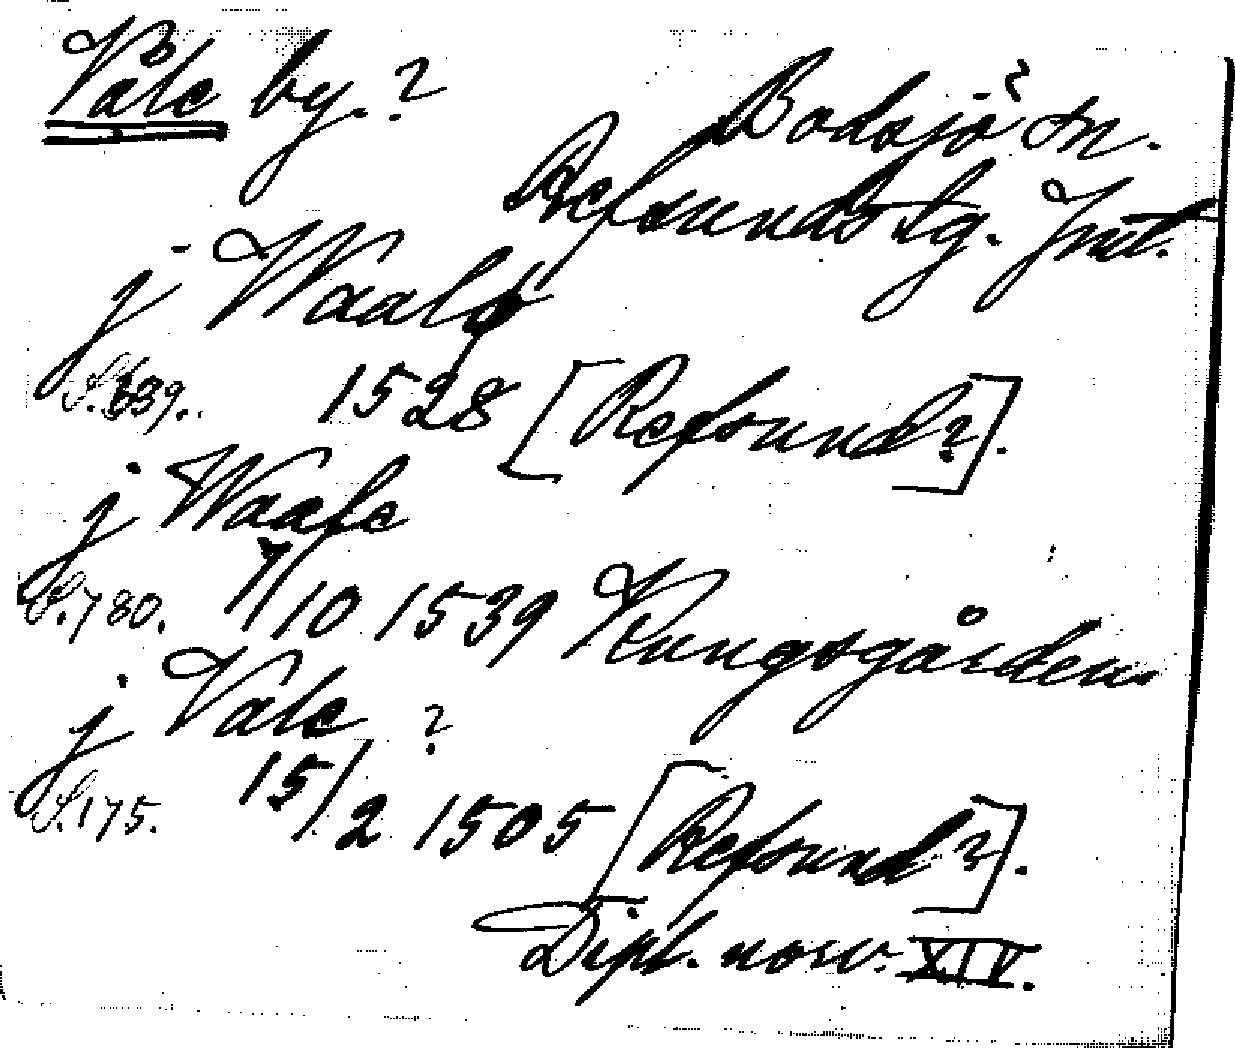 Våle by.?
Bodsjö? sn.
Refsunds tg. Jmtl.
j Waalø
S. 639. 1528 [Refsund?].
j Waale
S. 780. 7/10 1539 Kungsgården
j Vale ?
S. 175. 15/2 1505 [Refsund?].
Dipl. norv. XIV.